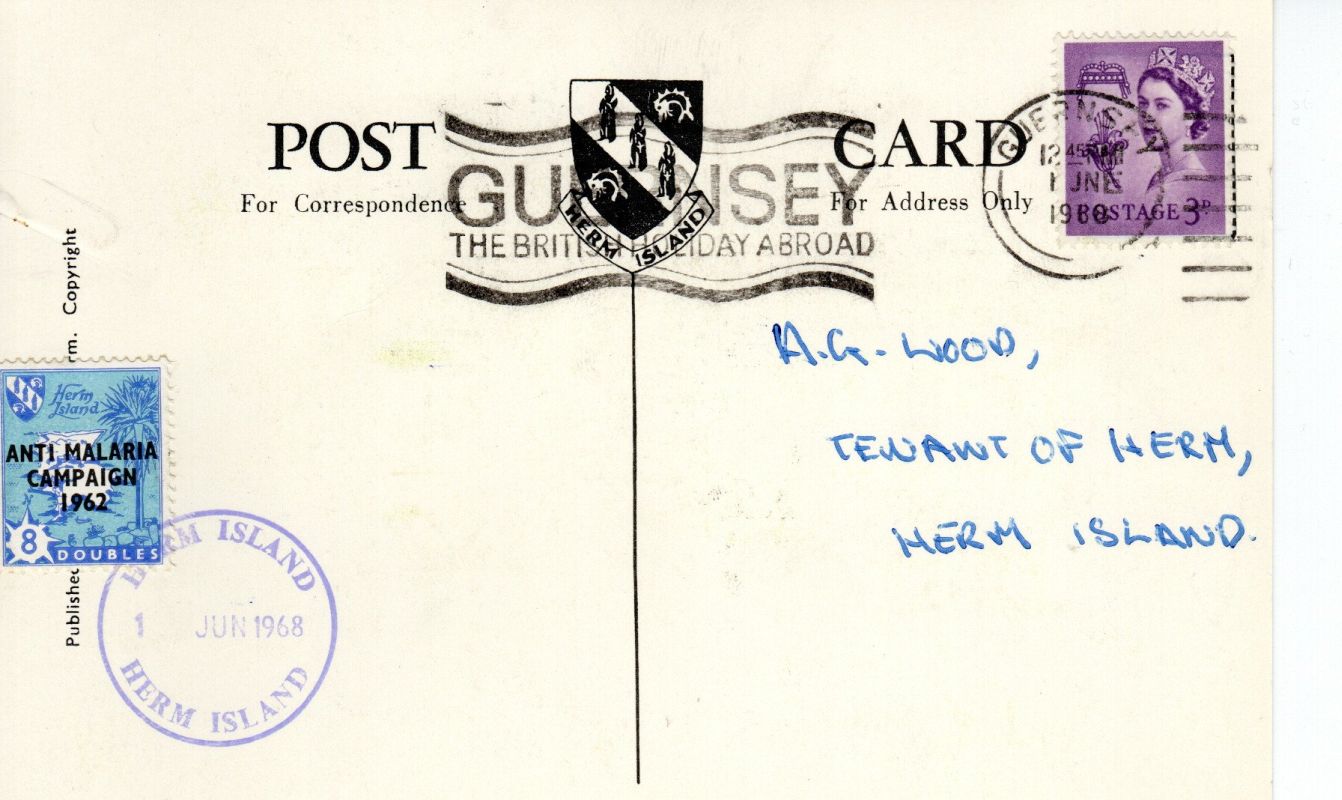 POST CARD
For Correspondence
For Address Only
HERM ISLAND
GUERNSEY
THE BRITISH HOLIDAY ABROAD
GUERNSEY
12 45 PM
1 JNE
1968
POSTAGE 3D
A.G. WOOD,
TENANT OF HERM,
HERM ISLAND.
Published
rm. Copyright
Herm
Island
ANTI MALARIA
CAMPAIGN
1962
8 DOUBLES
HERM ISLAND
1 JUN 1968
HERM ISLAND